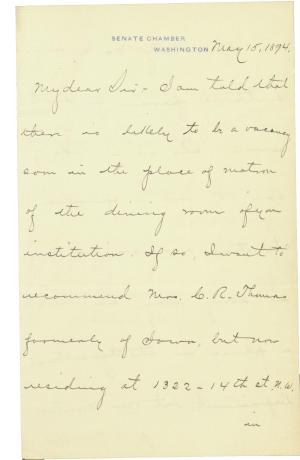 SENATE CHAMBER
WASHINGTON May 15, 1894.
My dear Sir - I am told that
there is likely to be a vacancy
soon in the place of matron
of the dining room of your
institution. If so, I want to
recommend Mrs. C. R. Thomas
formerly of Iowa, but now
residing at 1322 - 14th st. N.W.
in